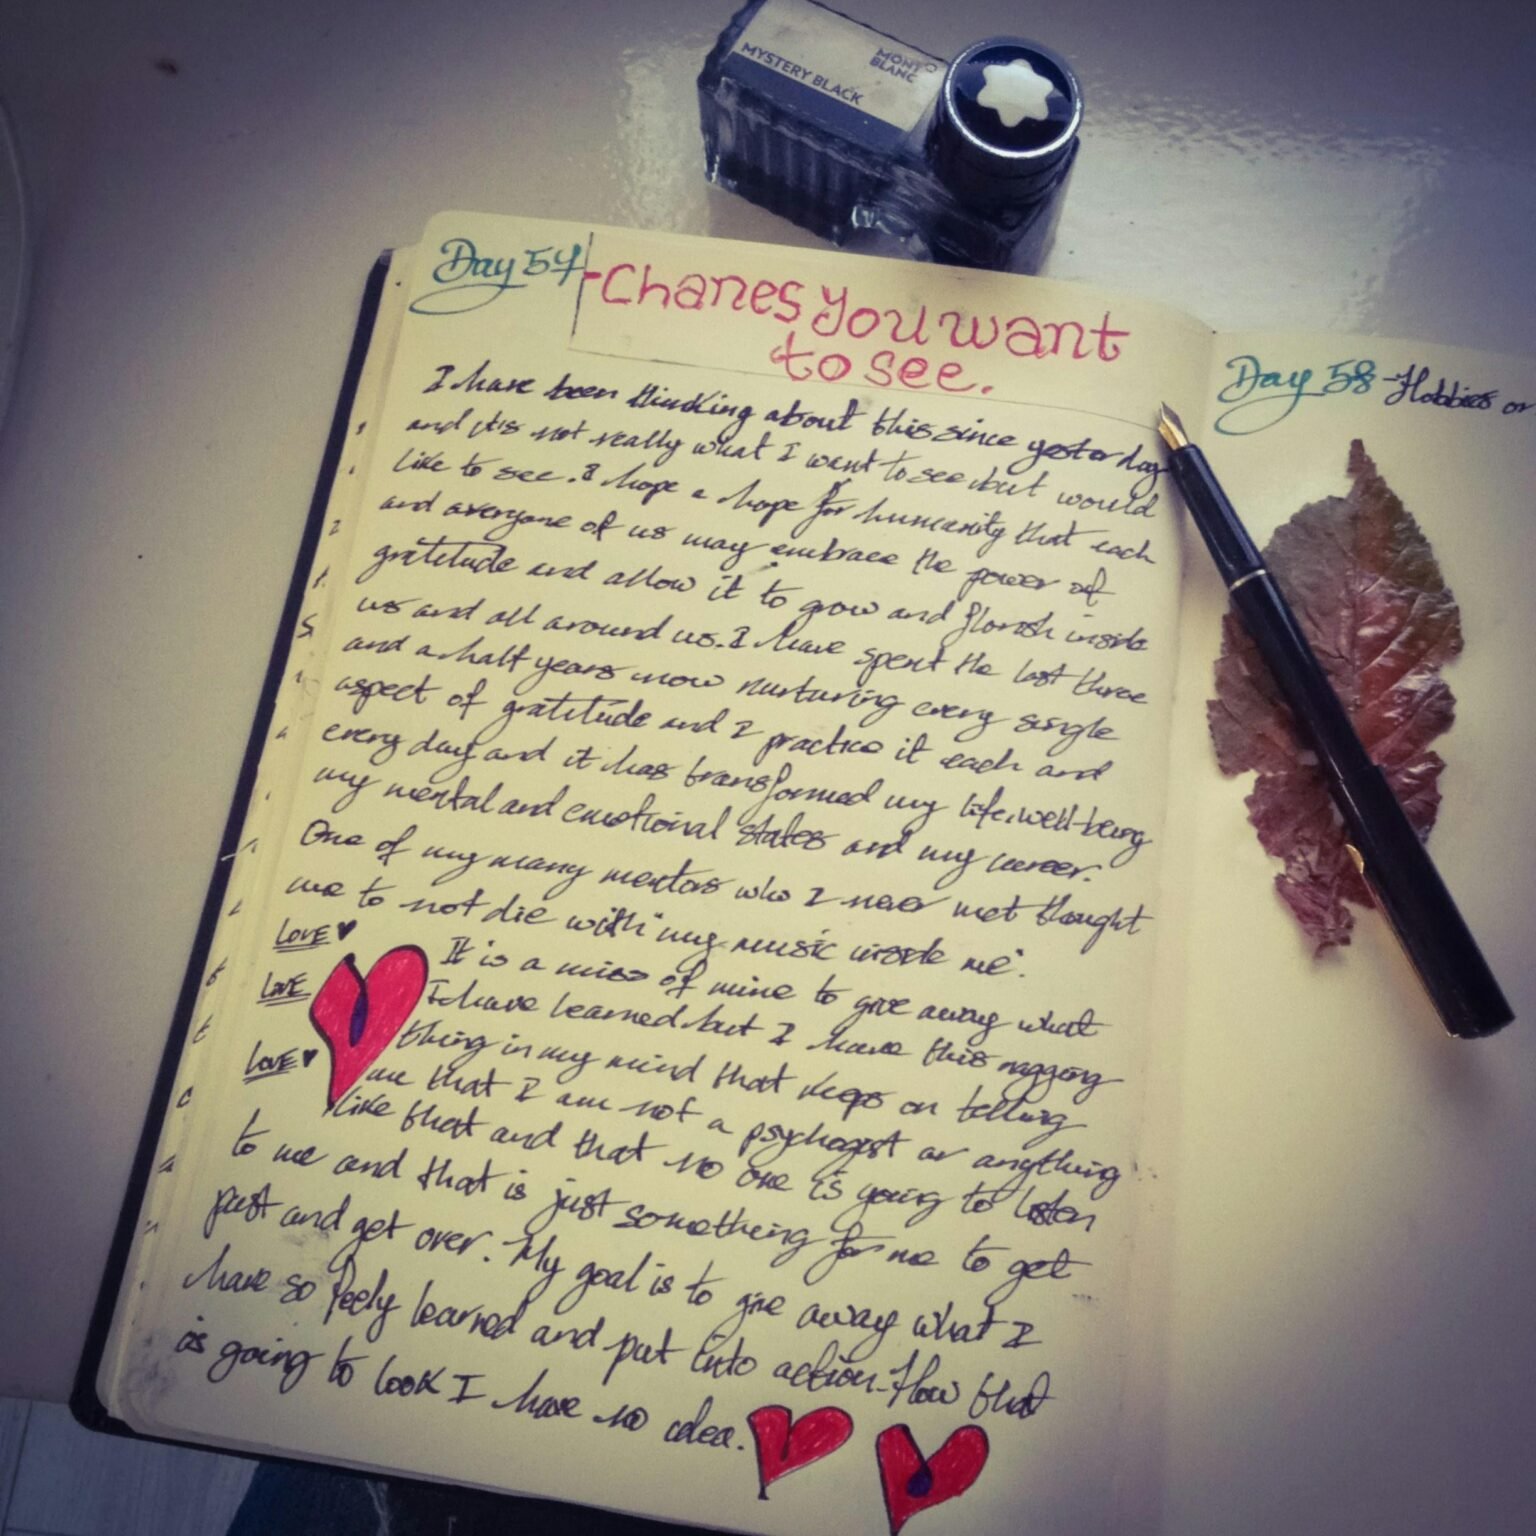 MONT
BLANC
MYSTERY BLACK
Day 57
-Chanes you want
to see.
I have been thinking about this since yesterday
and it's not really what I want to see but would
like to see. I hope a hope for humanity that each
and averyone of us may embrace the power of
gratitude and allow it to grow and florish inside
us and all around us. I have spent the last three
and a half years now nurturing every single
aspect of gratitude and I practice it each and
every day and it has transformed my life, well-being
my mental and emotional states and my career.
One of my many mentors who I never met thought
me to not die with "my music inside me".
LOVE
It is a miss of mine to give away what
LOVE
I have learned but I have this nagging
thing in my mind that keeps on telling
LOVE
me that I am not a psychogist or anything
like that and that no one is going to listen
to me and that is just something for me to get
past and get over. My goal is to give away what I
have so feely learned and put into action-How that
is going to look I have no idea.
Day 58 - Hobbies or